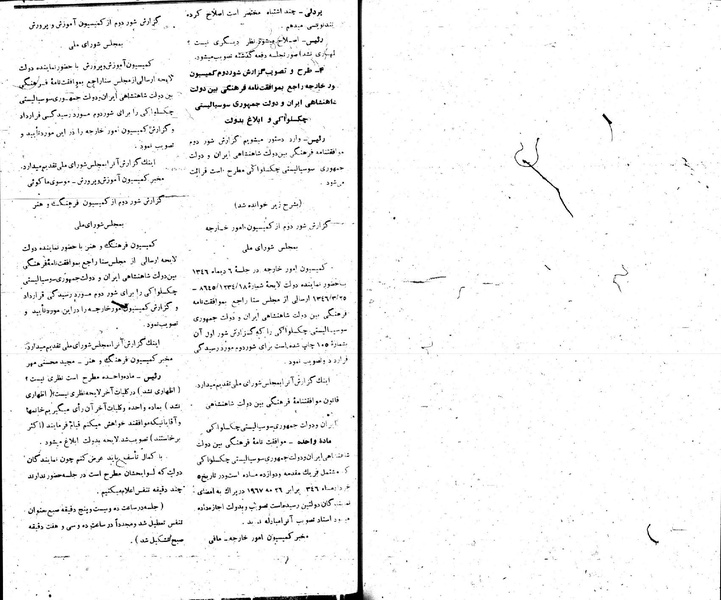 یزدانی - چند اشتباه مختصر است اصلاح کرده
بتندنویسی میدهم .
رئیس - اصلاح میشود نظر دیگری نیست ؟
( اظهاری نشد ) صورت جلسه دفعه گذشته تصویب میشود.
۴ - طرح و تصویب گزارش شور دوم کمیسیون
امور خارجه راجع بموافقتنامه فرهنگی بین دولت
شاهنشاهی ایران و دولت جمهوری سوسیالیستی
چکسلواکی و ابلاغ بدولت
رئیس - وارد دستور میشویم گزارش شور دوم
موافقتنامه فرهنگی بین دولت شاهنشاهی ایران و دولت
جمهوری سوسیالیستی چکسلواکی مطرح است قرائت
میشود .
( بشرح زیر خوانده شد )
گزارش شور دوم از کمیسیون امور خارجه
بمجلس شورای ملی
کمیسیون امور خارجه در جلسهٔ ۶ دیماه ۱۳۴۶
با حضور نماینده دولت لایحهٔ شمارهٔ ۸۶۴۵/۱۲۳۴/۱۸ -
۱۳۴۶/۳/۲۵ ارسالی از مجلس سنا راجع بموافقتنامه
فرهنگی بین دولت شاهنشاهی ایران و دولت جمهوری
سوسیالیستی چکسلواکی را که گزارش شور اول آن
بشمارهٔ ۱۰۵ چاپ شده است برای شور دوم مورد رسیدگی
قرار داد و تصویب نمود .
اینک گزارش آنرا بمجلس شورای ملی تقدیم میدارد.
قانون موافقتنامهٔ فرهنگی بین دولت شاهنشاهی
ایران و دولت جمهوری سوسیالیستی چکسلواکی
مادهٔ واحده - موافقت نامهٔ فرهنگی بین دولت
شاهنشاهی ایران و دولت جمهوری سوسیالیستی چکسلواکی
که مشتمل بر یک مقدمه و دوازده ماده است و در تاریخ ۵
خرداد ماه ۱۳۴۶ برابر ۲۶ مه ۱۹۶۷ در پراگ به امضای
نمایندگان دولتین رسیده است تصویب و بدولت اجازه داده
میشود اسناد تصویب آنرا مبادله نماید .
مخبر کمیسیون امور خارجه - مافی
گزارش شور دوم از کمیسیون آموزش و پرورش
بمجلس شورای ملی
کمیسیون آموزش و پرورش با حضور نماینده دولت
لایحه ارسالی از مجلس سنا راجع بموافقتنامه فرهنگی
بین دولت شاهنشاهی ایران و دولت جمهوری سوسیالیستی
چکسلواکی را برای شور دوم مورد رسیدگی قرار داد
و گزارش کمیسیون امور خارجه را در این مورد تأیید و
تصویب نمود .
اینک گزارش آنرا بمجلس شورای ملی تقدیم میدارد.
مخبر کمیسیون آموزش و پرورش - موسوی ماکوئی
گزارش شور دوم از کمیسیون فرهنگ و هنر
بمجلس شورای ملی
کمیسیون فرهنگ و هنر با حضور نماینده دولت
لایحه ارسالی از مجلس سنا راجع بموافقتنامهٔ فرهنگی
بین دولت شاهنشاهی ایران و دولت جمهوری سوسیالیستی
چکسلواکی را برای شور دوم مورد رسیدگی قرار داد
و گزارش کمیسیون امور خارجه را در این مورد تأیید و
تصویب نمود.
اینک گزارش آنرا بمجلس شورای ملی تقدیم میدارد.
مخبر کمیسیون فرهنگ و هنر - مجید محسنی مهر
رئیس - ماده واحده مطرح است نظری نیست ؟
( اظهاری نشد ) در کلیات آخر لایحه نظری نیست؟( اظهاری
نشد ) بماده واحده و کلیات آخر آن رأی میگیریم خانمها
و آقایانیکه موافقند خواهش میکنم قیام فرمایند ( اکثر
برخاستند ) تصویب شد لایحه بدولت ابلاغ میشود .
با کمال تأسف باید عرض کنم چون نمایندگان
دولت که لوایحشان مطرح است در جلسه حضور ندارند
چند دقیقه تنفس اعلام میکنیم .
( جلسه در ساعت ده و بیست و پنج دقیقه صبح بعنوان
تنفس تعطیل شد و مجدداً دو ساعت ده و سی و هفت دقیقه
صبح تشکیل شد ) .